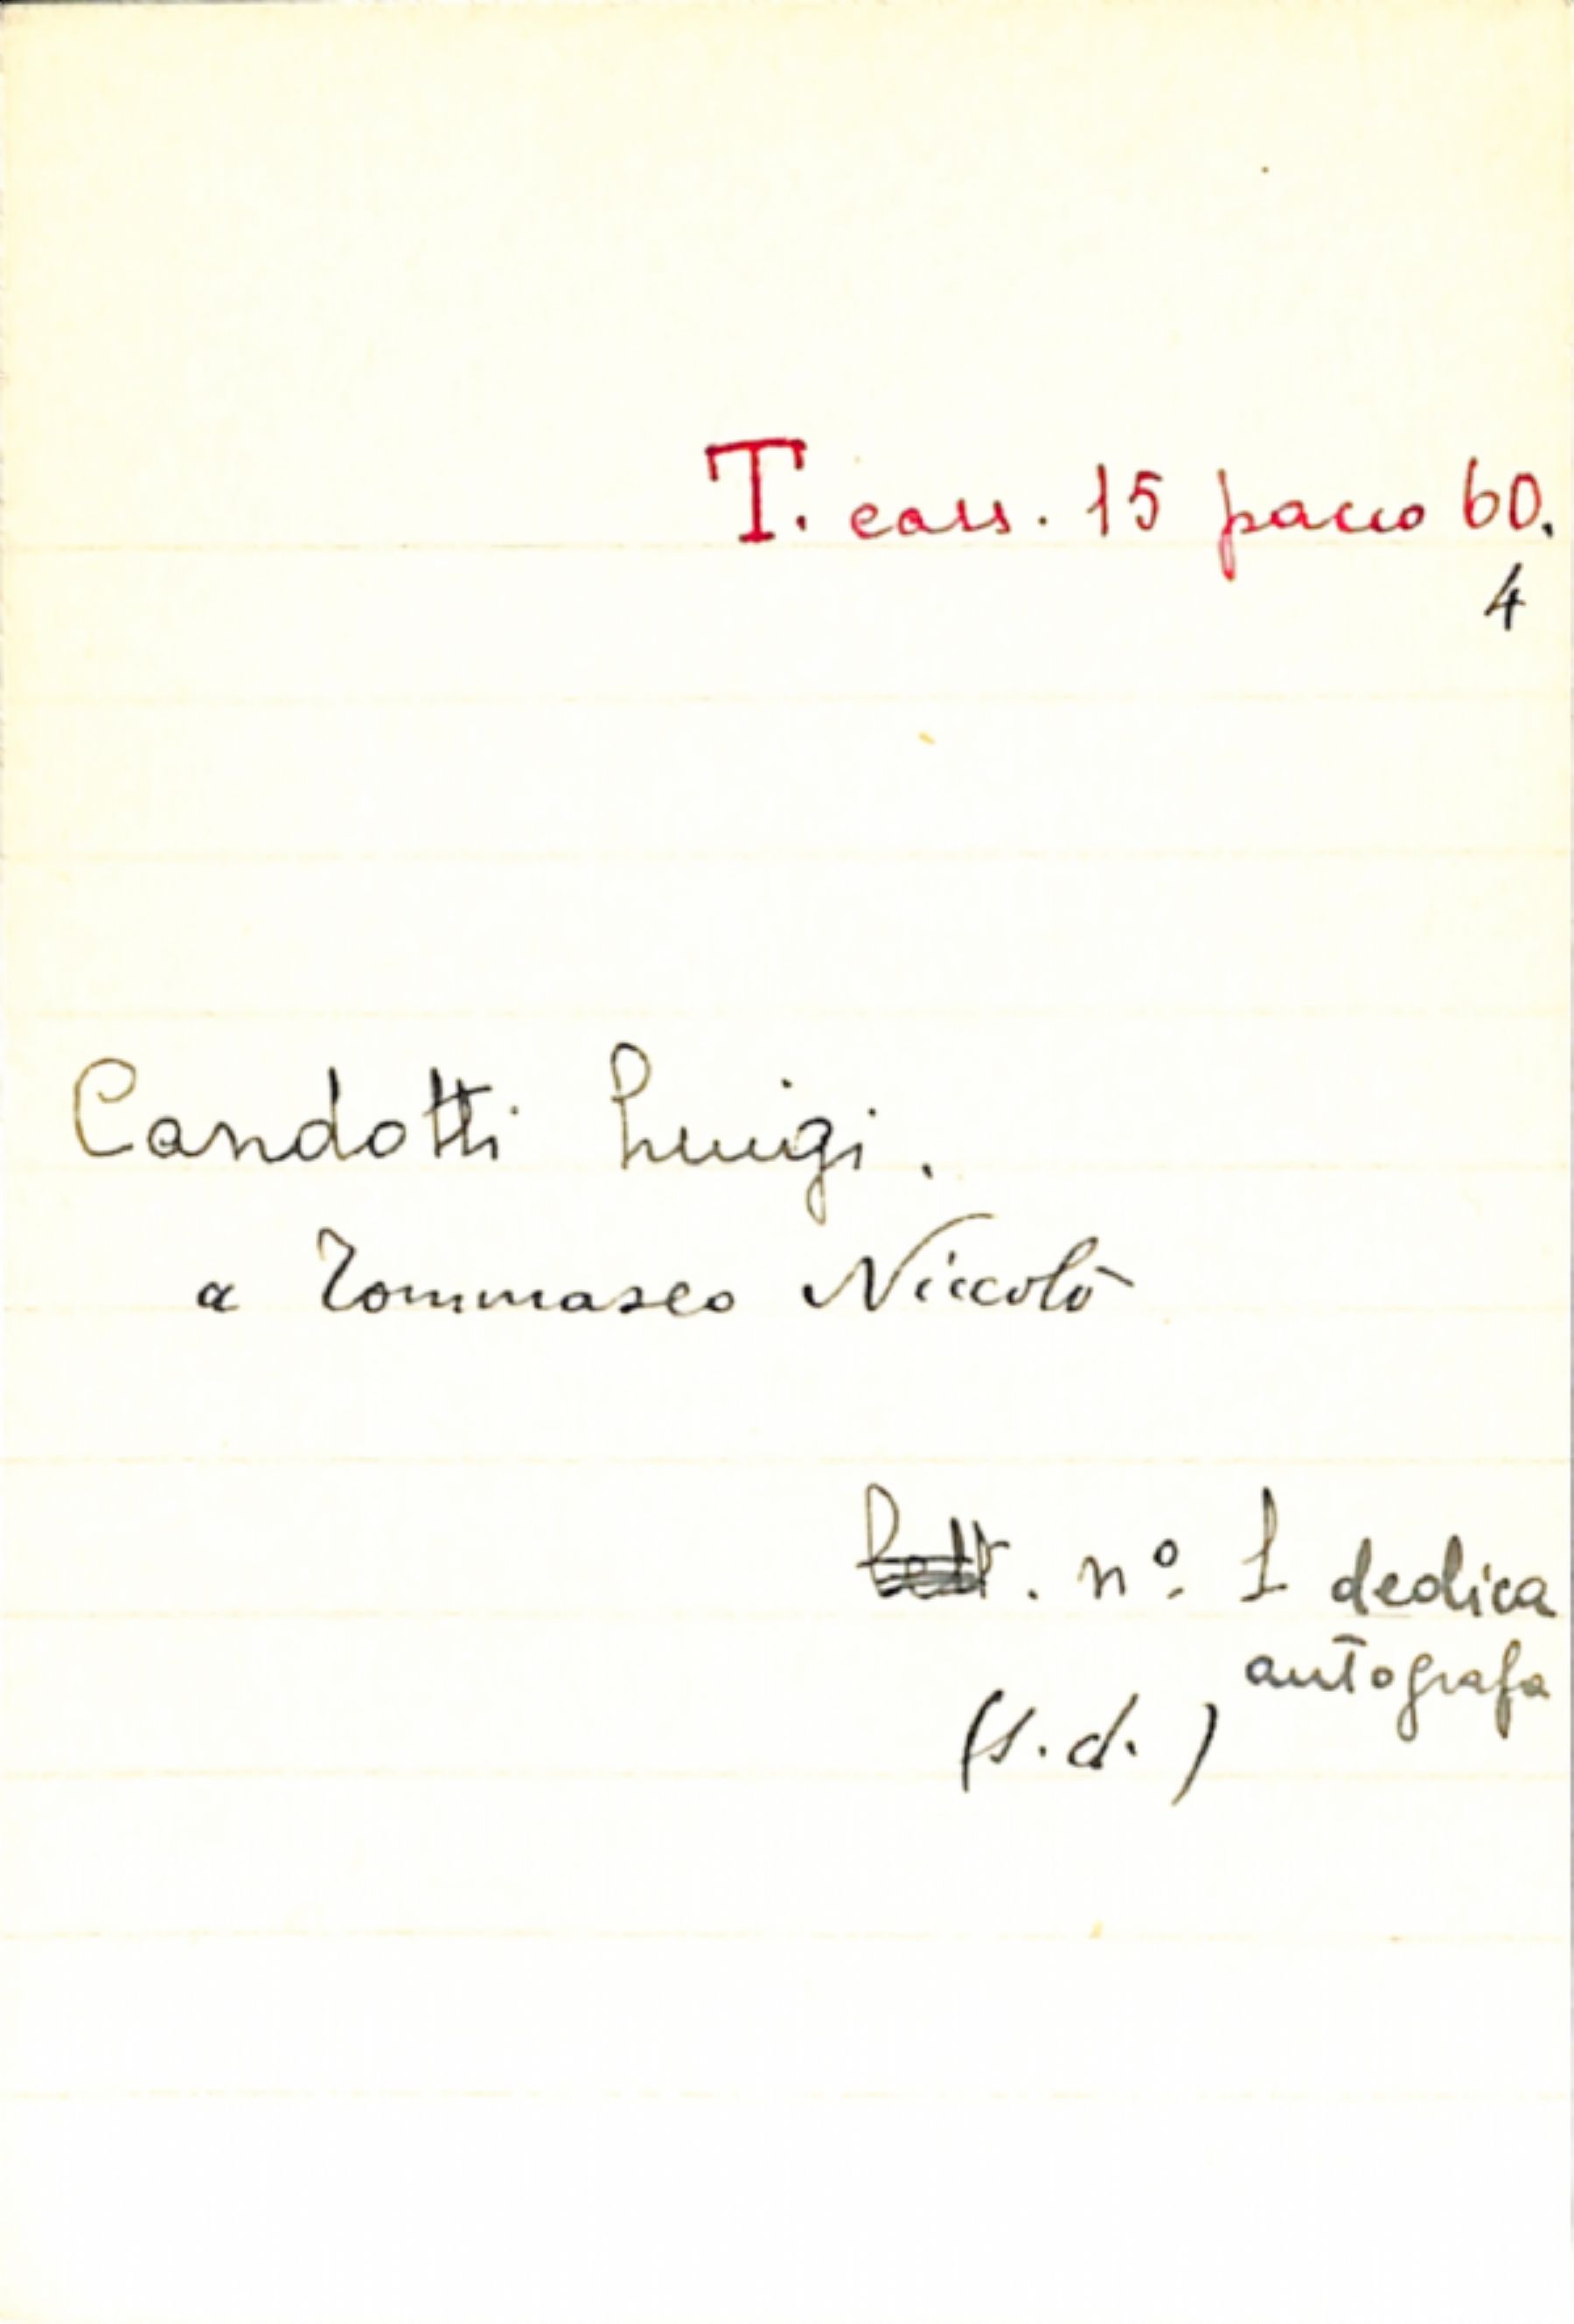 T. cass. 15 pacco 60.
4
Candotti Luigi.
a Tommaseo Niccolò
Lett. nº. 1 dedica
autografa
(s.d.)